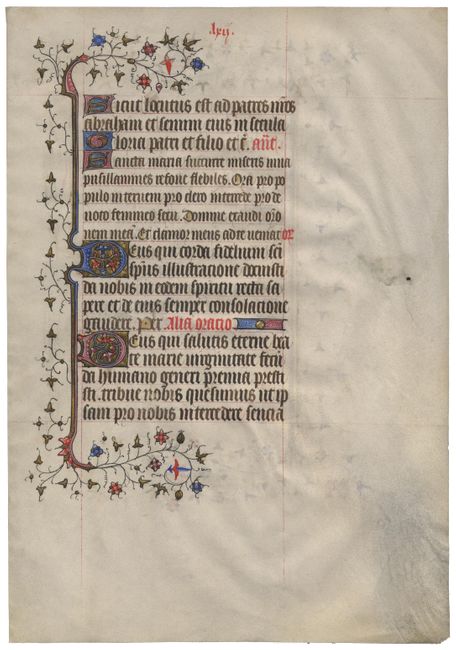 lxij.
Sicut locutus est ad patres nr̄os
abraham et semini eius in secula
Gloria patri et filio et c̄. an̄t.
Sancta maria succurre miseris iuua
pusillanimes refoue flebiles. Ora pro po
pulo interueni pro clero intercede pro de
uoto femineo sexu. Domine exaudi or̄o
nem meā. Et clamor meus ad te ueniat or̄
Deus qui corda fidelium sc̄i
sp̄us illustratione docuisti
da nobis in eodem spiritu recta sa
pere et de eius semper consolatione
gaudere. Per. Alia oratio
Deus qui salutis eterne bea
te marie uirginitate fecū
da humano generi premia presti
tisti. tribue nobis quesumus ut ip
sam pro nobis intercedere sencia